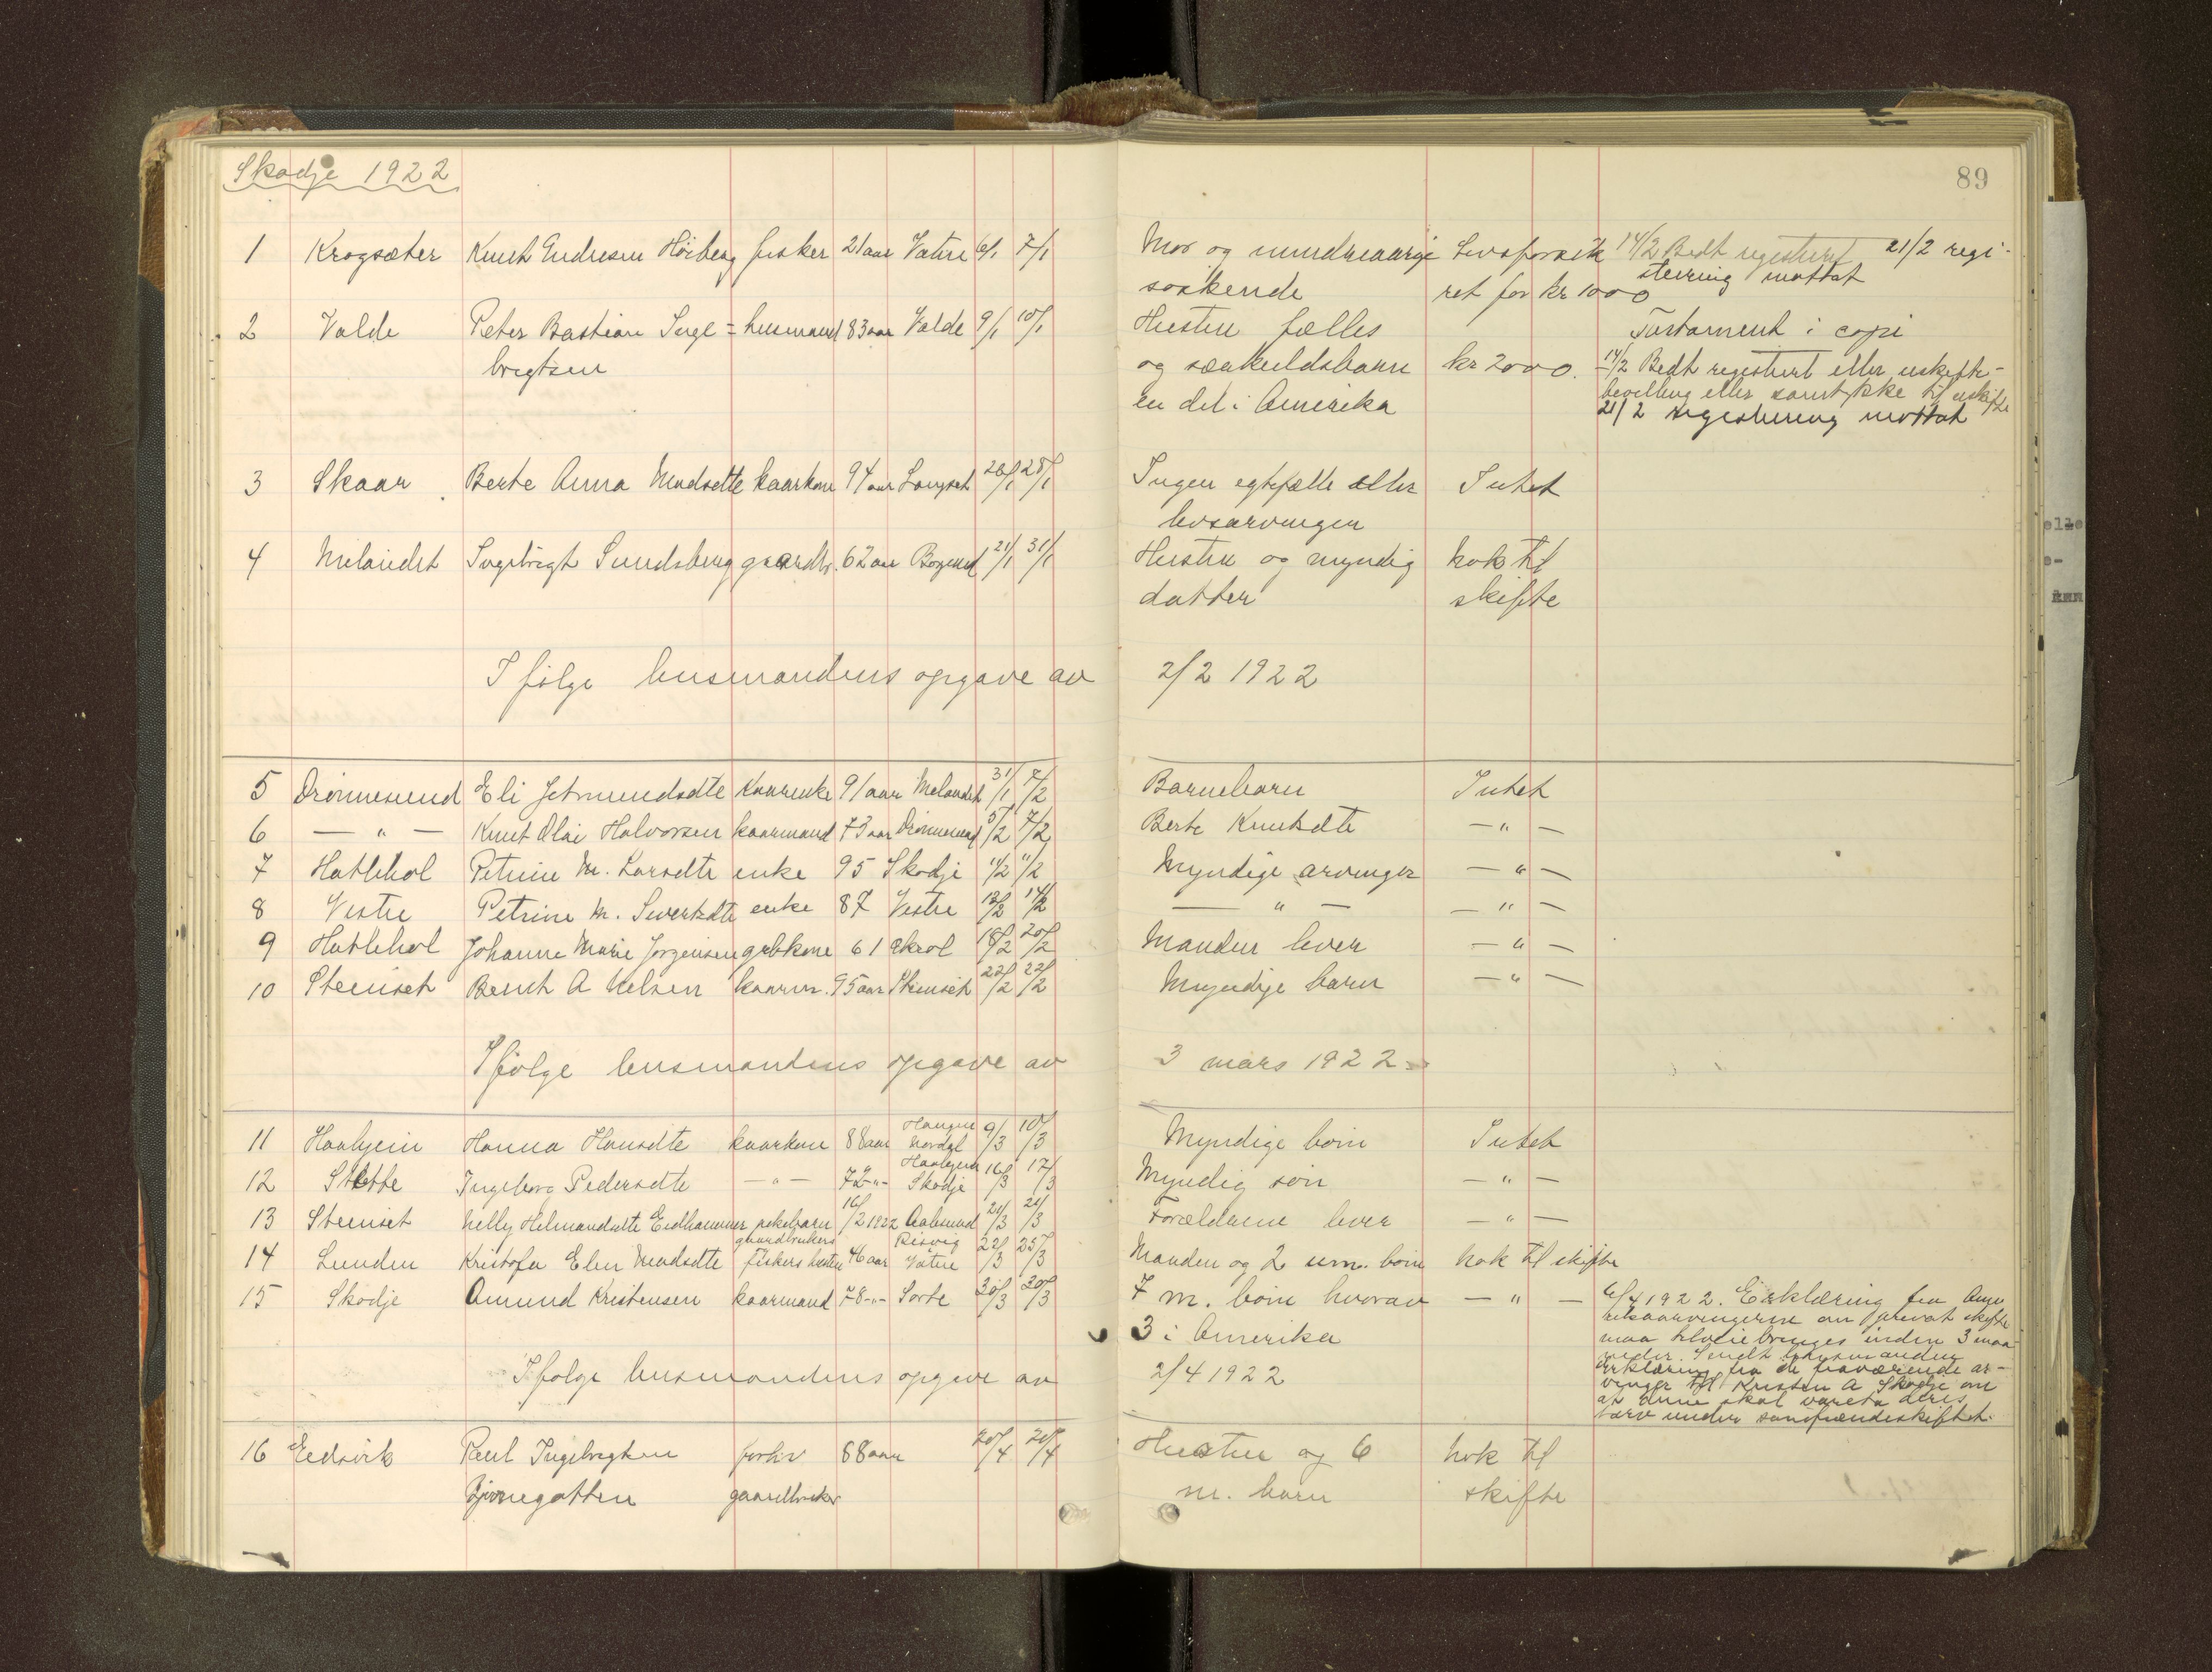 Skodje 1922
89
1 Krogsæter Knut Endresen Höiberg fisker 21 aar Vatne 6/1 7/1 Mor og mindreaarige Livsforsik 14/2 Bedt registrert 21/2 regi-
söskende ret for kr 1000 strering mottat
2 Valde Peter Bastian Inge= husmand 83 aar Valde 9/1 10/1 Hustru fælles Testament i copi
brigtsen og særkuldsbarn kr 2000. 14/2 Bedt registrert eller uskifte-
en del i Amerika bevilling eller samtykke til uskifte
21/2 registrering mottat
3 Skaar Berte Anna Madsdtte kaarkone 94 aar Langset 26/1 28/1 Ingen egtefælle eller Intet
livsarvinger
4 Melandet Ingebrigt Sundsberg gaardbr. 62 aar Borgund 21/1 31/1 Hustru og myndig nok til
datter skifte
Ifölge lensmandens opgave av 2/2 1922
5 Drönnesund Eli Jetmundsdte kaarenke 91 aar Melandet 31/1 7/2 Barnebarn Intet
6 — " — Knut Olai Halvorsen kaarmand 73 aar Drönnesund 5/2 7/2 Berte Knutsdte — " —
7 Hatlehol Petrine M. Larsdte enke 95 Skodje 11/2 11/2 Myndige arvinger — " —
8 Vestre Petrine M. Sivertsdte enke 87 Vestre 12/2 14/2 — " — — " —
9 Hatlehol Johanne Marie Jorgensen grbkone 61 18/2 20/2 Manden lever — " —
10 Steinset Bernt A Nelsen kaarm. 95 aar Steinset 22/2 22/2 Myndige barn — " —
Ifölge lensmandens opgave av 3 mars 1922
11 Haahjem Hanna Hansdte kaarkone 88 aar Nordal 9/3 10/3 Myndige börn Intet
12 Stette Ingeborg Pedersdte — " — 72 - " - Haahjem Skodje 16/3 17/3 Myndig sön — " —
13 Steinset Nelly Helmandsdte Eidhammer pikebarn 16/2 1922 Aalesund 21/3 21/3 Forældrene lever — " —
14 Lunden Kristofa Elen Madsdte gaardbrukers fiskers hustru 46 aar Risvig Vatne 22/3 25/3 Manden og 2 um. börn nok til skifte
15 Skodje Amund Kristensen kaarmand 78 - " - Sorte 30/3 30/3 7 m. börn hvorav — " — 6/4 1922. Erklæring fra Ame
3 i Amerika rikaarvingerne om privat skifte
maa tilveiebringes inden 3 maa-
neder. Sendt lensmanden
Ifölge lensmandens opgave av 2/4 1922 erklæring fra de fraværende ar-
vinger til Kristen A Skodje om
at denne skal vareta deres
tarv under samfrændeskiftet.
16 Eidsvik Paul Ingebrigtsen forhv 88 aar 20/4 20/4 Hustru og 6 nok til
Bjönegotten gaardbruker m. barn skifte
elle
e-